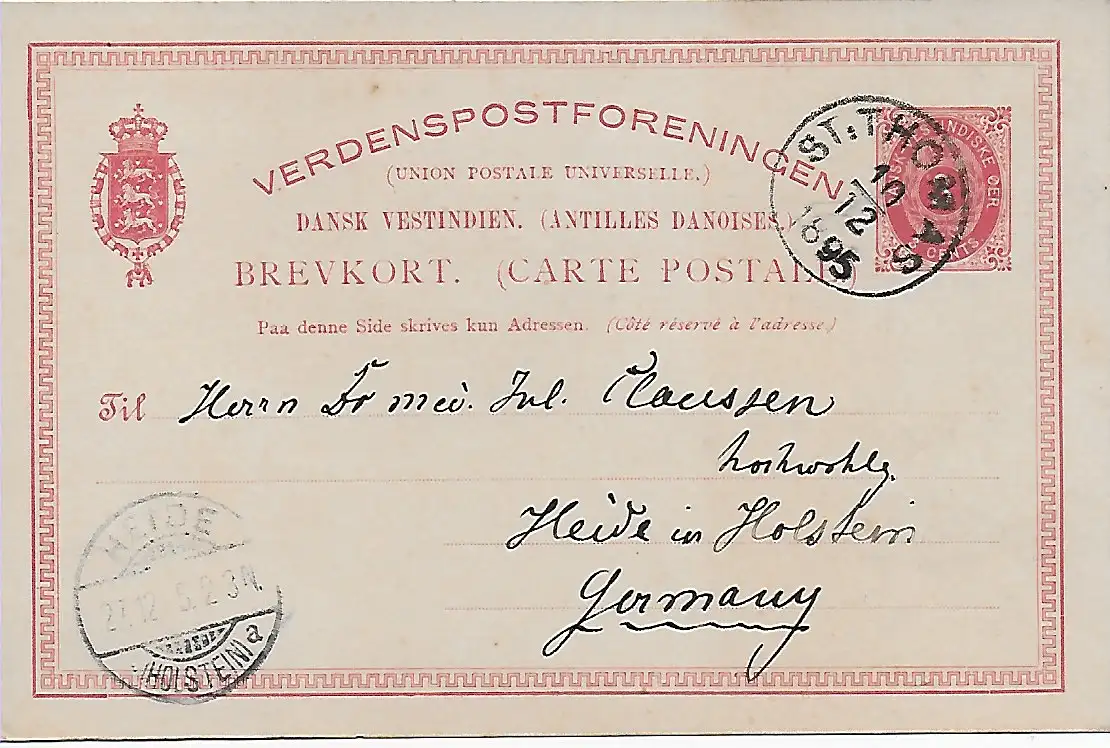 VERDENSPOSTFORENINGEN
(UNION POSTALE UNIVERSELLE.)
DANSK VESTINDIEN. (ANTILLES DANOISES)
BREVKORT. (CARTE POSTALE)
Paa denne Side skrives kun Adressen. (Côté réservé à l'adresse)
ST. THOMAS
10
12
1895
3
CENTS
Til Herrn Dr med. Jul. Claussen
hochwohlg.
Heide in Holstein
Germany
HEIDE
27.12
(HOLSTEIN) a